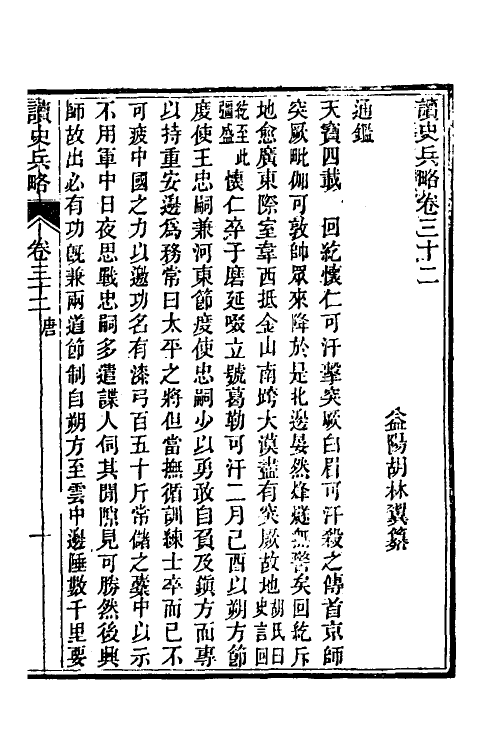 讀史兵略卷三十二
益陽胡林翼纂
通鑑
天寶四載　回紇懷仁可汗擊突厥白眉可汗殺之傳首京師
突厥毗伽可敦帥眾來降於是北邊晏然烽燧無警矣回紇斥
地愈廣東際室韋西抵金山南跨大漠盡有突厥故地胡氏曰史言回
紇至此彊盛懷仁卒子磨延啜立號葛勒可汗二月己酉以朔方節
度使王忠嗣兼河東節度使忠嗣少以勇敢自負及鎮方面專
以持重安邊為務常曰太平之將但當撫循訓練士卒而已不
可疲中國之力以邀功名有漆弓百五十斤常儲之櫜中以示
不用軍中日夜思戰忠嗣多遣諜人伺其閒隙見可勝然後興
師故出必有功既兼兩道節制自朔方至雲中邊陲數千里要
讀史兵略　卷三十二　唐　一